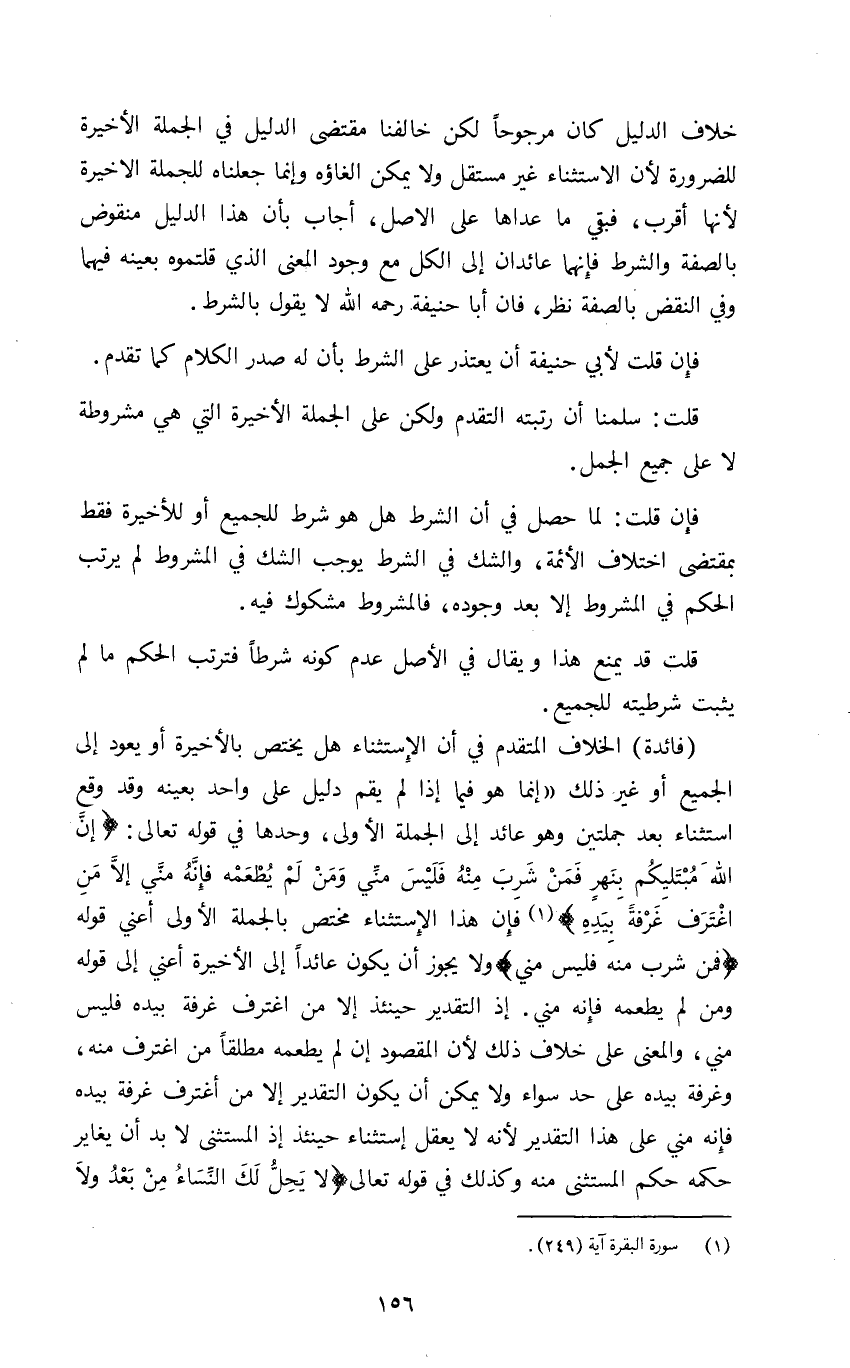 خلاف الدليل كان مرجوحاً لكن خالفنا مقتضى الدليل في الجملة الأخيرة
للضرورة لأن الاستثناء غير مستقل ولا يمكن الغاؤه وإنما جعلناه للجملة الاخيرة
لأنها أقرب، فبقي ما عداها على الاصل، أجاب بأن هذا الدليل منقوض
بالصفة والشرط فإنهما عائدان إلى الكل مع وجود المعنى الذي قلتموه بعينه فيهما
وفي النقض بالصفة نظر، فان أبا حنيفة رحمه الله لا يقول بالشرط.
فإن قلت لأبي حنيفة أن يعتذر على الشرط بأن له صدر الكلام كما تقدم.
قلت: سلمنا أن رتبته التقدم ولكن على الجملة الأخيرة التي هي مشروطة
لا على جميع الجمل.
فإن قلت: لما حصل في أن الشرط هل هو شرط للجميع أو للأخيرة فقط
بمقتضى اختلاف الأئمة، والشك في الشرط يوجب الشك في المشروط لم يرتب
الحكم في المشروط إلا بعد وجوده، فالمشروط مشكوك فيه.
قلت قد يمنع هذا ويقال في الأصل عدم كونه شرطاً فترتب الحكم ما لم
يثبت شرطيته للجميع.
(فائدة) الخلاف المتقدم في أن الإستثناء هل يختص بالأخيرة أو يعود إلى
الجميع أو غير ذلك «إنما هو فيما إذا لم يقم دليل على واحد بعينه وقد وقع
استثناء بعد جملتين وهو عائد إلى الجملة الأولى، وحدها في قوله تعالى: ﴿إنَّ
الله مُبْتَلِيكُم بِنَهرٍ فَمَنْ شَرِبَ مِنْهُ فَلَيْسَ مِنِّي وَمَنْ لَمْ يُطْعَمْه فإنَّهُ منَّي إلاَّ مَنِ
اغْتَرَف غَرْفةً بِيَدِهِ﴾(١) فإن هذا الإستثناء مختص بالجملة الأولى أعني قوله
﴿فمن شرب منه فليس مني﴾ ولا يجوز أن يكون عائداً إلى الأخيرة أعني إلى قوله
ومن لم يطعمه فإنه مني. إذ التقدير حينئذ إلا من اغترف غرفة بيده فليس
مني، والمعنى على خلاف ذلك لأن المقصود إن لم يطعمه مطلقاً من اغترف منه،
وغرفة بيده على حد سواء ولا يمكن أن يكون التقدير إلا من أغترف غرفة بيده
فإنه مني على هذا التقدير لأنه لا يعقل إستثناء حينئذ إذ المستثنى لا بد أن يغاير
حكمه حكم المستثنى منه وكذلك في قوله تعالى ﴿لا يَحِلُّ لَكَ النِّسَاءُ مِنْ بَعْدُ ولاَ
(١) سورة البقرة آية (٢٤٩).
١٥٦